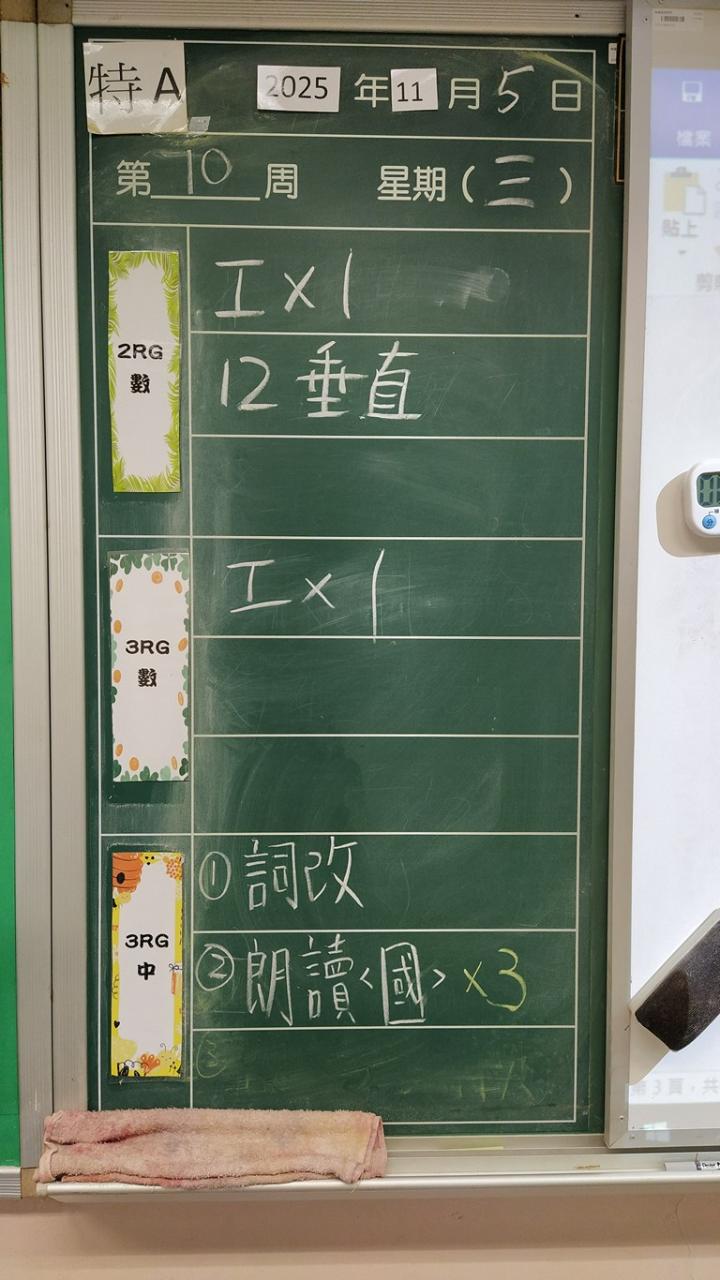 特A 2025 年 11 月 5 日
第 10 周 星期 (三)
2RG
數
工 x 1
12 垂直
3RG
數
工 x 1
3RG
中
① 詞改
② 朗讀<國> x3
③
檔案
貼上